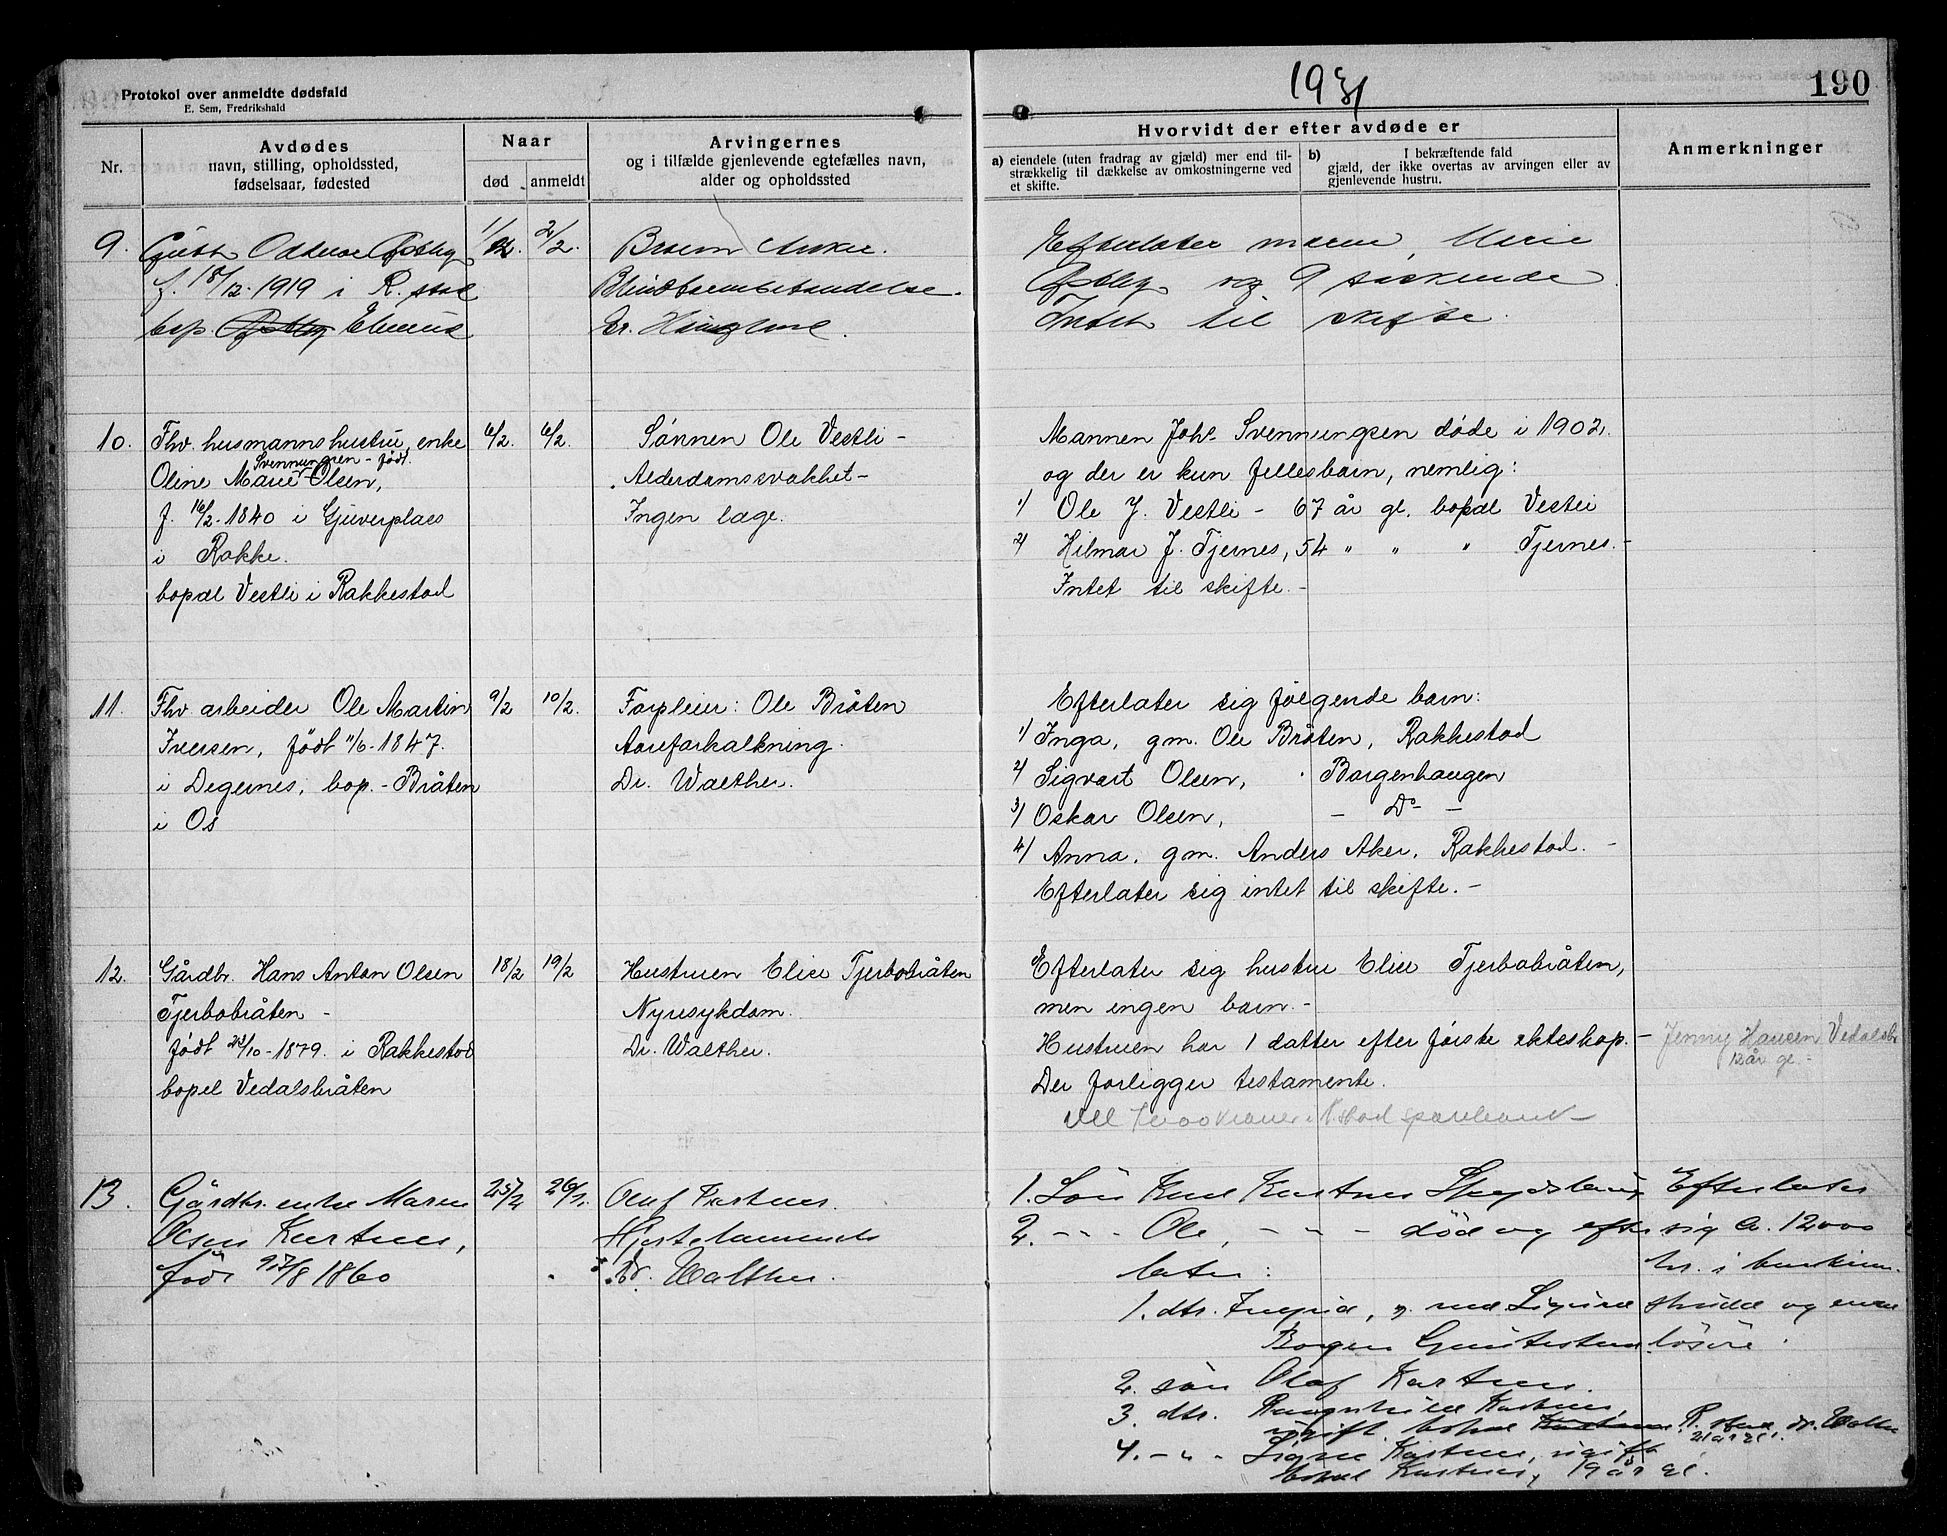 Protokol over anmeldte dødsfald
E. Sem, Fredrikshald
1931
190
Nr.
Avdødes
navn, stilling, opholdssted,
fødselsaar, fødested
Naar
død
anmeldt
Arvingernes
og i tilfælde gjenlevende egtefælles navn,
alder og opholdssted
Hvorvidt der efter avdøde er
a) eiendele (uten fradrag av gjæld) mer end til-
strækkelig til dækkelse av omkostningerne ved
et skifte.
b) I bekræftende fald
gjæld, der ikke overtas av arvingen eller av
gjenlevende hustru.
Anmerkninger
9.
f. 18/12-1919 i R.stad
bop.
1/2.
2/2.
Dr.
Efterlater moren, Marie
og 9 søskende.
Intet til skifte.
10.
Fhv. husmannshustru, enke
Svennungsen - født
Oline Marie Olsen,
f. 16/2-1840 i Gjuverplads
i Rakke.
bopæl Vestli i Rakkestad
6/2.
6/2.
Sønnen Ole Vestli -
Alderdomssvakhet -
Ingen læge.
Mannen Johs. Svennungsen døde i 1902.
og der er kun fellesbarn, nemlig:
1) Ole J. Vestli - 67 år gl. bopæl Vestli
2) Hilmar J. Tjernes, 54 " " " Tjernes. -
Intet til skifte. -
11.
Fhv. arbeider Ole Martin
Iversen, født 11/6-1847.
i Degernes, bop. - Bråten
i Os
9/2
10/2.
Forpleier: Ole Bråten
Aareforkalkning.
Dr. Walther.
Efterlater sig følgende barn:
1) Inga, gm. Ole Bråten, Rakkestad
2) Sigvart Olsen, Borgenhaugen
3) Oskar Olsen, - Do -
4) Anna, gm. Anders Aker, Rakkestad. -
Efterlater sig intet til skifte. -
12.
Gårdbr. Hans Anton Olsen
Tjerbobråten -
født 23/10-1879. i Rakkestad
bopel Vedalsbråten
18/2
19/2
Hustruen Elise Tjerbobråten
Nyresykdom.
Dr. Walther.
Efterlater sig hustru Elise Tjerbobråten,
men ingen barn. -
Hustruen har 1 datter efter første ekteskap. - Jenny Hansen Vedalsbr
12 år gl. -
Der forligger testamente.
kroner i R.stad sparebank
13.
Gårdbr. enke Maren
Olsen Kastnes,
født 27/8 1860
25/2
26/2.
Olaf Kastnes.
Dr. Walther.
1. Søn Karl Kastnes
2. - " - Ole, - " - død og efter
later:
Efterlater
sig ca. 12000
kr. i
1. dtr. Ingrid, g. med Sigurd
Borgen
og
løsøre.
2. søn Olaf Kastnes.
3. dtr. Ragnhild Kastnes,
ugift, bopæl Kastnes, R.stad,
21 år gl.
4. - " - Signe Kastnes, ugift
bopæl Kastnes, 19 år gl.